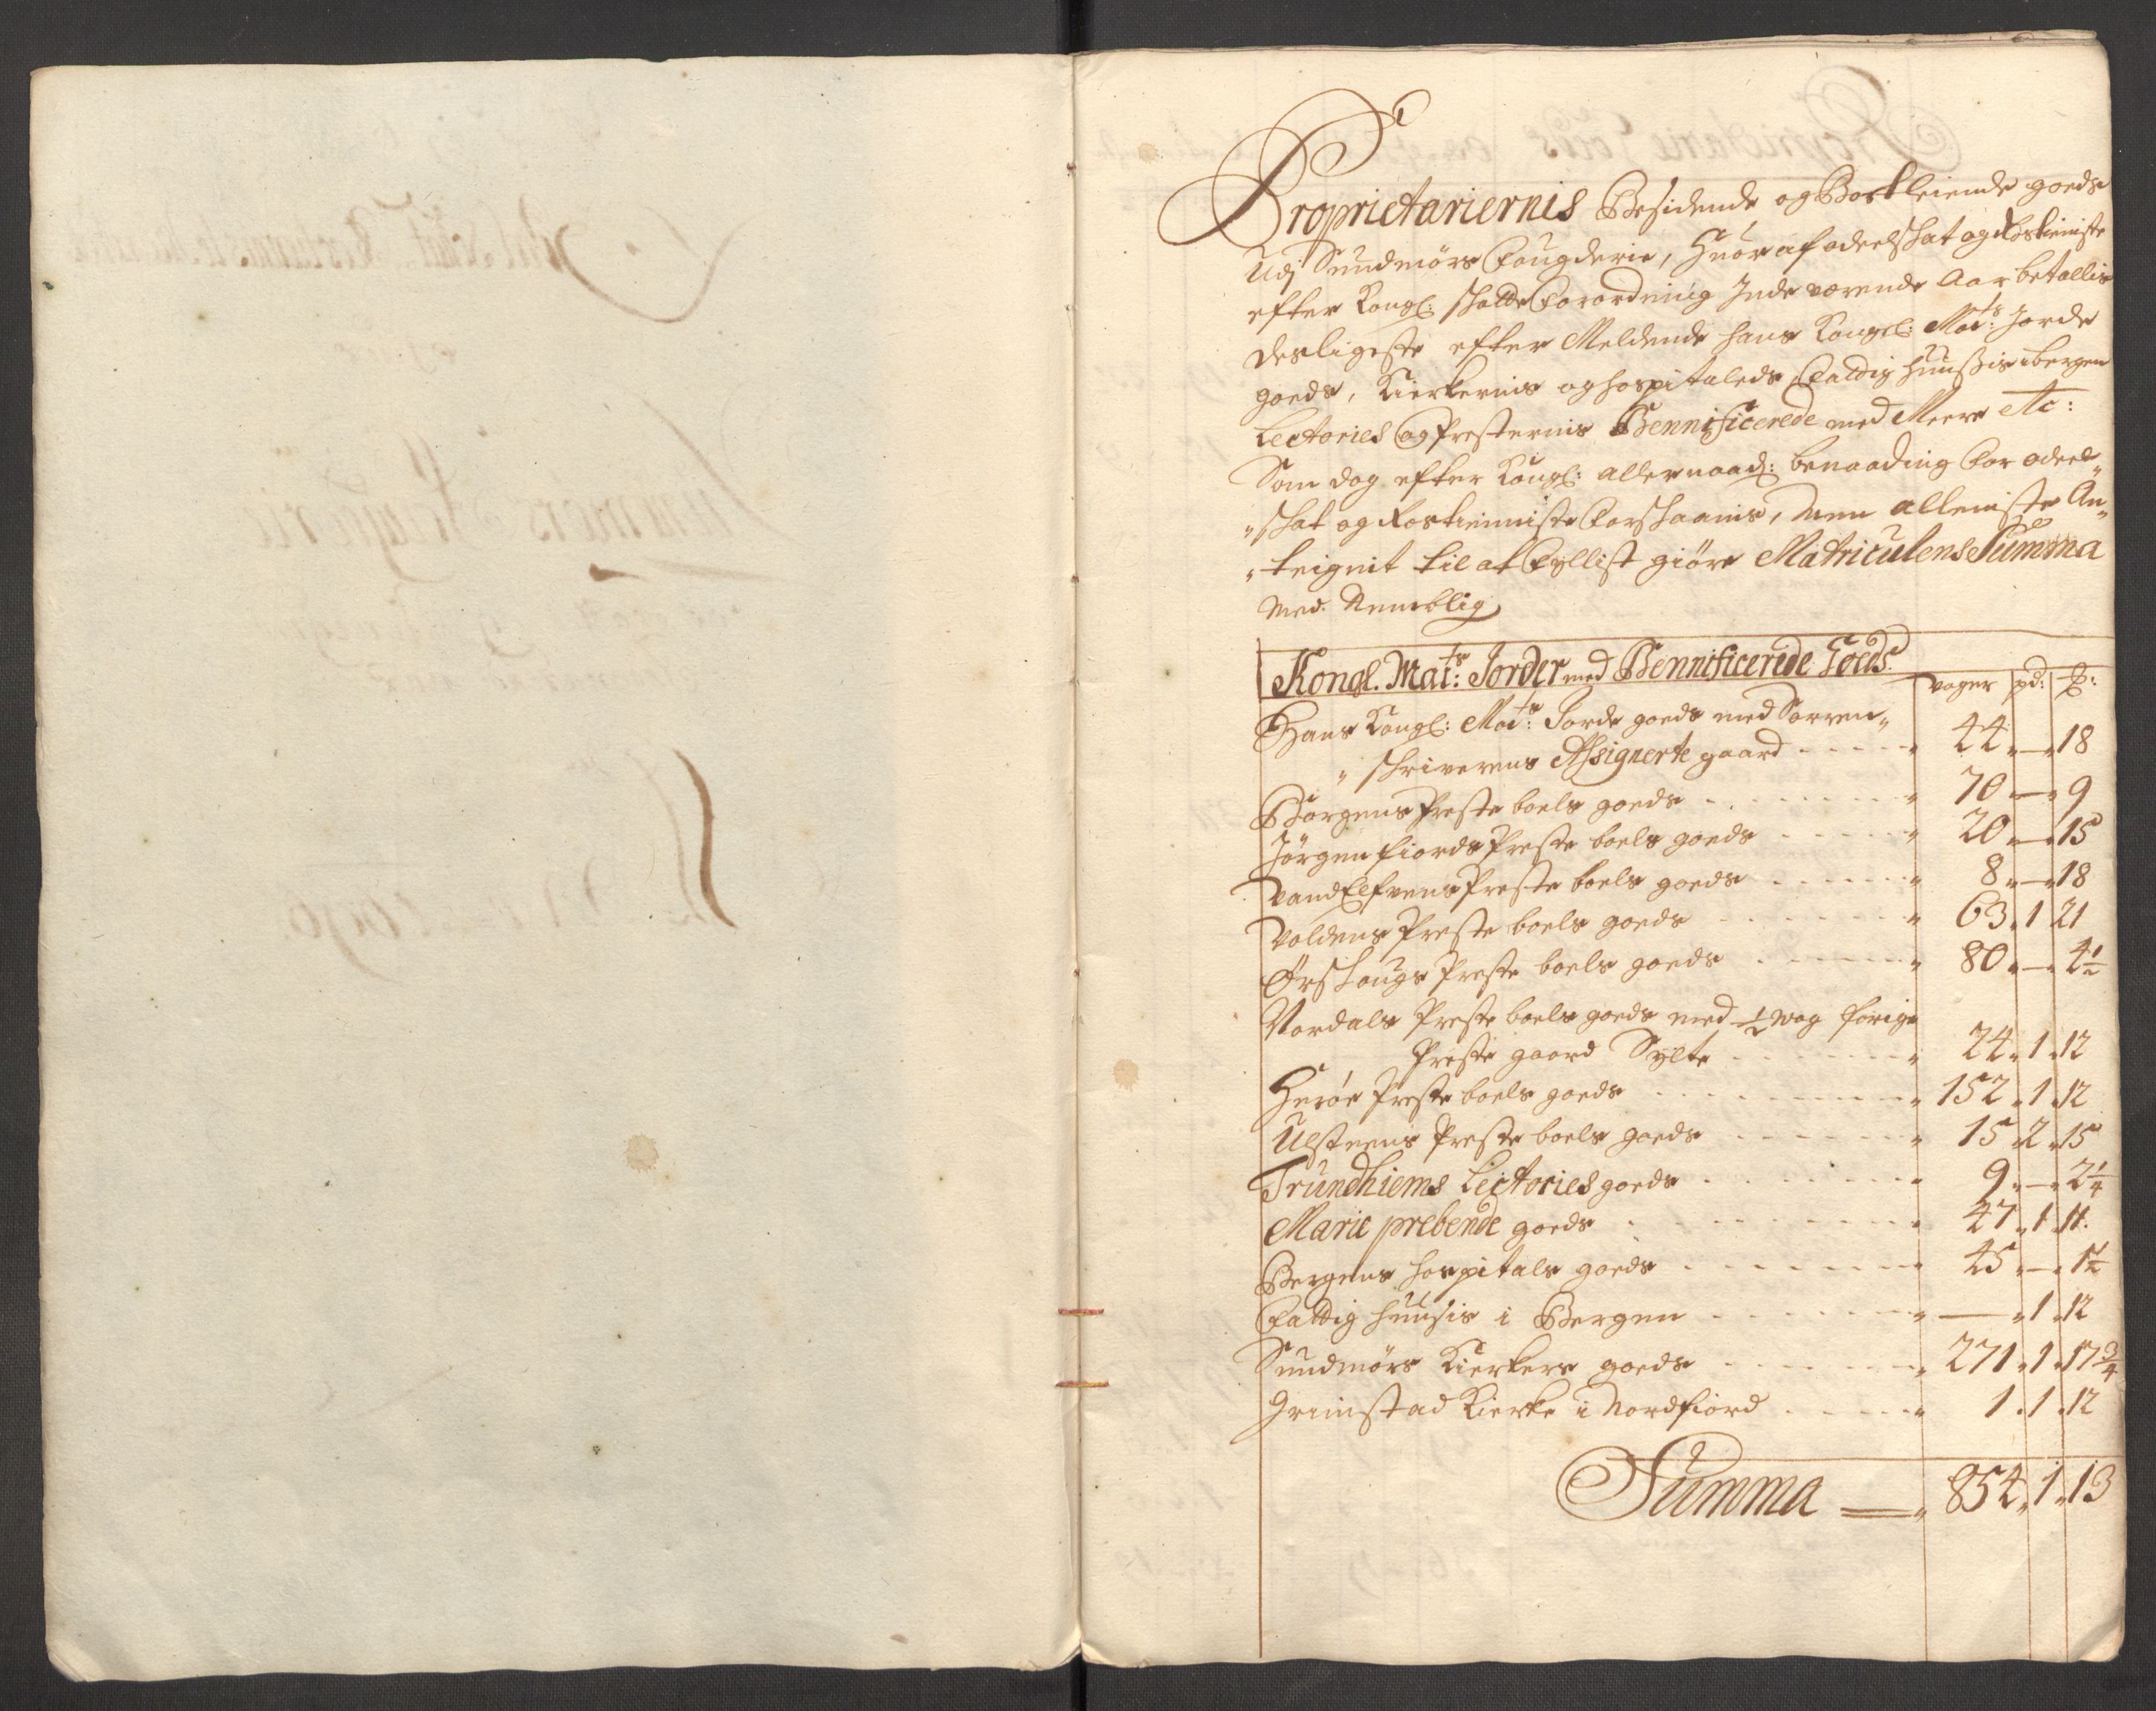 Proprietariernis Besidende og Bortleiende goeds
Udj Sundmørs fougderie, Huor af odelschat og Rostieniste
efter Kongl: schatte forordning Inde værende Aar betallis
desligeste efter Meldende hans Kongl: Ma:ts Jorde
goeds, Kierkernis og hospitaleds fattig huußis i bergen
Lectories og Presternis Bennificerede med Mere etc:
Som dog efter Kongl: allernaad: benaading for odel-
„schat og Rostieniste forschaanis, men alleniste An-
„teignit til at fyllist giøre Matriculens Summa
Med. Nemblig
Kongl. Mai:ts Jorder med Bennificerede Goeds.
voger pd: ℔:
Hans Kongl: Mai:ts Jorde goeds med Sorren-
„schriverens Assignerte gaard 44 — 18
Borgens Preste boels goeds 70 — 9
Jørgenfiords Preste boels goeds 20 — 15
VandElfvens Preste boels goeds 8 — 18
Voldens Preste boels goeds 63 1 21
Ørschougs Preste boels goeds 80 — 4½
Nordals Preste boels goeds med ½ wog forige
Preste gaard Sylte 24 1 12
Herøe Preste boels goeds 152 1 12
Ulsteens Preste boels goeds 15 2 15
Trundhiems Lectories goeds 9 — 2¼
Marie prebende goeds 47 1 11.
Bergens hospitals goeds 45 — 1½
Fattig huusis i Bergen — 1 12
Sundmørs Kierkers goeds 271 1 17¾
Grimstad Kierke i Nordfiord 1 1 12
Summa 854 1 13